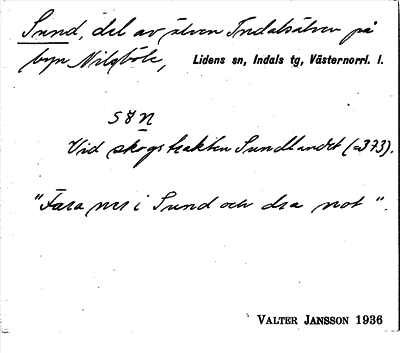 Sund, del av älven Indalsälven på
byn Nilsböle, Lidens sn, Indals tg, Västernorrl. l.
Vid skogstrakten Sundlandet (=373).
"Fara ner i Sund och dra not".
VALTER JANSSON 1936